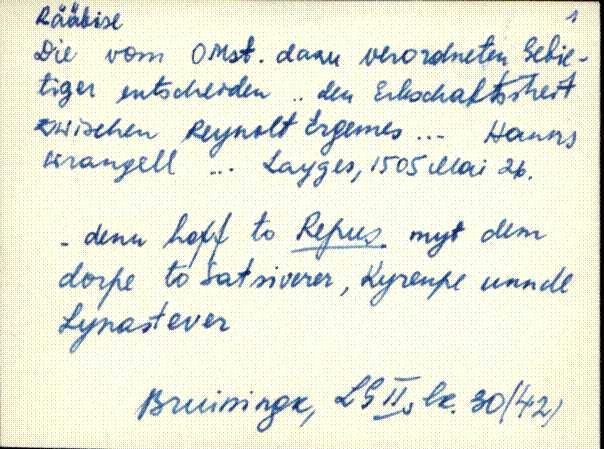 Rääbise 1
Die vom OMst. dazu verordneten Gebie-
tiger entscheiden .. den Erbschaftsstreit
zwischen Reynolt Ergemes ... Hanns
Wrangell ... Layges, 1505 Mai 26.
- denn hoff to Repus myt dem
dorpe to Satsiverer, Kyrenpe unnde
Lynastever
Bruiningk, LG II, lk. 30 (42)